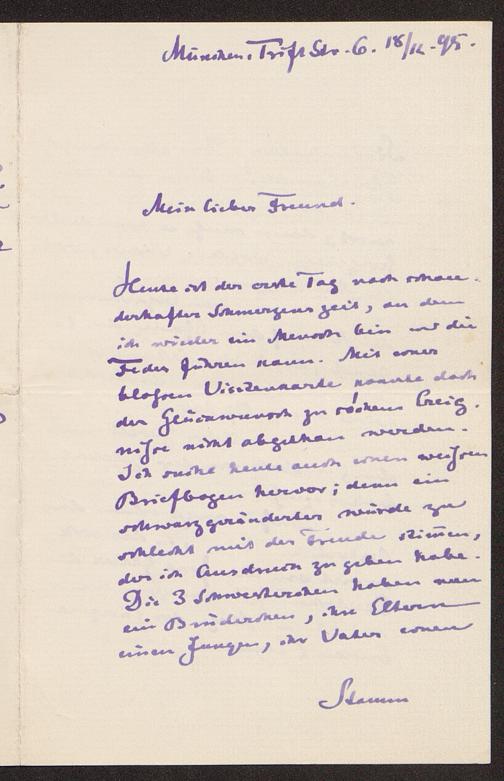 München, Trift Str. 6. 18/12. 95.
Mein lieber Freund.
Heute ist der erste Tag nach schau-
derhafter Schmerzenszeit, an dem
ich wieder ein Mensch bin und die
Feder führen kann. Mit einer
bloßen Visitenkarte konnte doch
der Glückwunsch zu solchem Ereig-
nisse nicht abgethan werden.
Ich suche heute auch einen weißen
Briefbogen hervor; denn ein
schwarzgeränderter würde zu
schlecht mit der Freude stimmen,
der ich Ausdruck zu geben habe.
Die 3 Schwesterchen haben nun
ein Brüderchen, ihre Eltern
einen Jungen, ihr Vater einen
Stamm